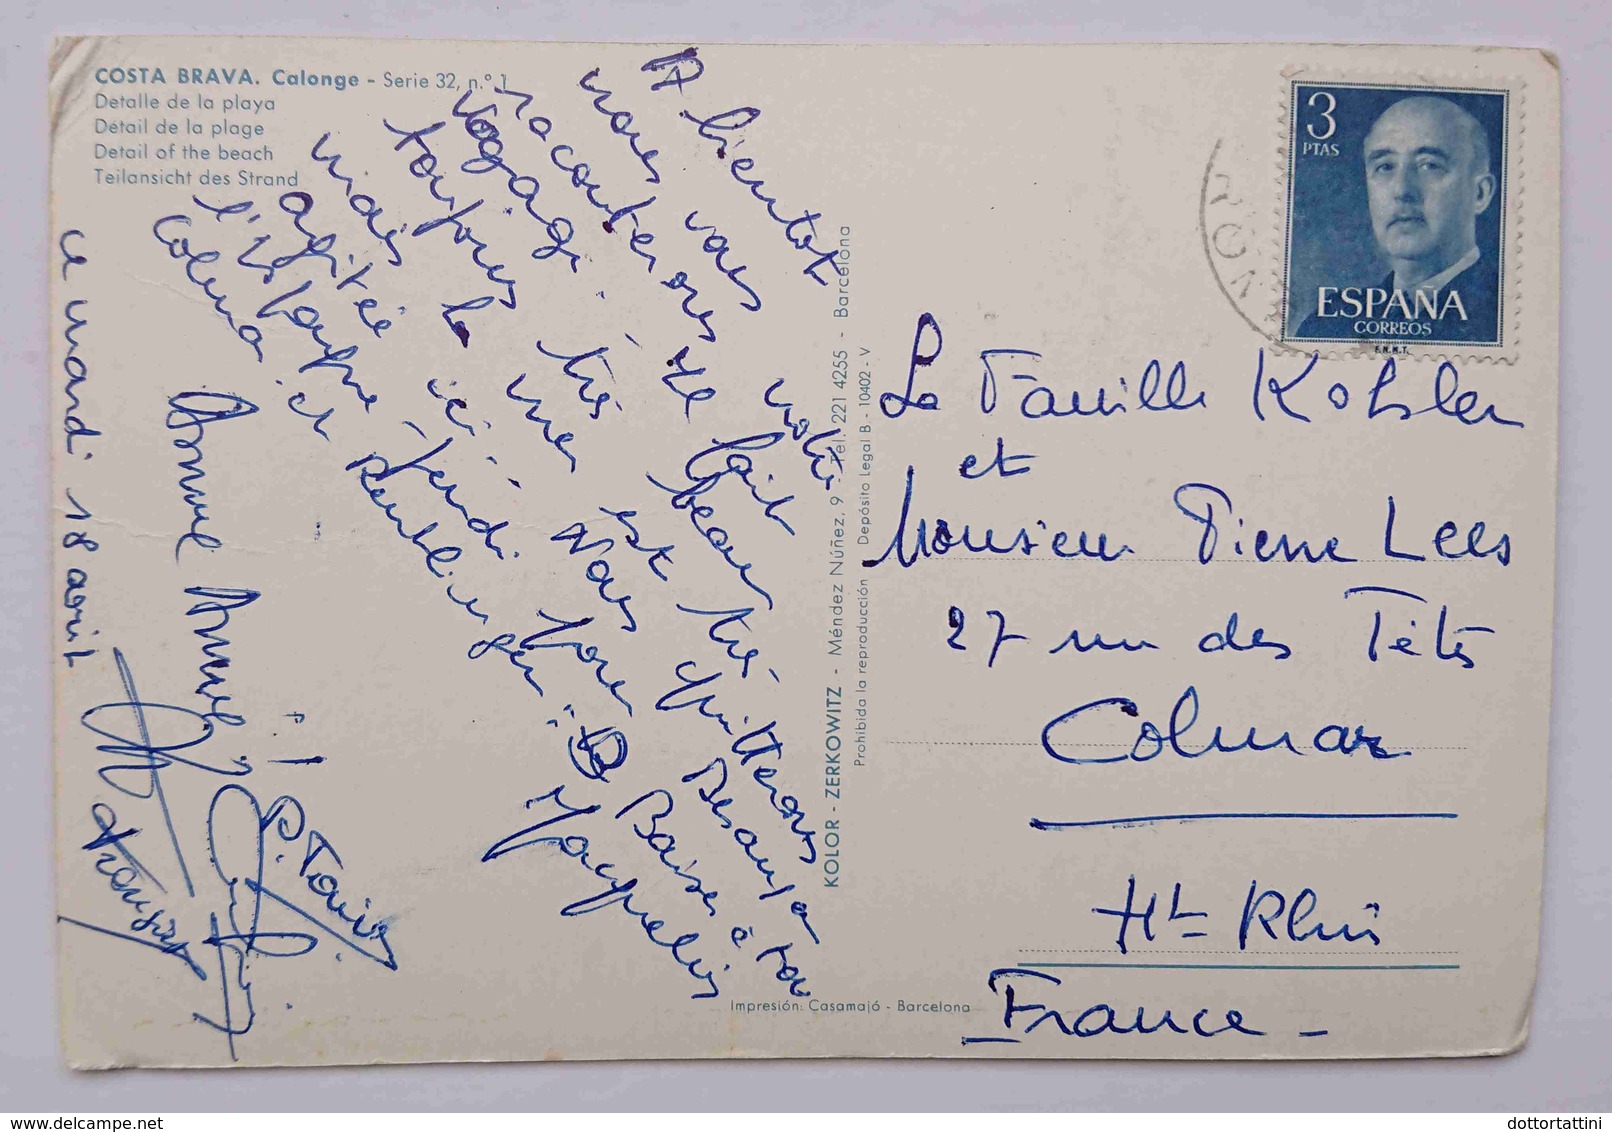 COSTA BRAVA. Calonge - Serie 32, n.° 1
Detalle de la playa
Détail de la plage
Detail of the beach
Teilansicht des Strand
ce mardi 18 avril
A bientôt
nous vous
raconterons notre
voyage. Il fait
toujours très beau
mais la mer est très
agitée ici. Nous quitterons
l'Espagne jeudi pour
Colmar et Reutlingen
Baisers à tous
Jacqueline
P. Tania
François
KOLOR - ZERKOWITZ - Méndez Núñez, 9 - Tel. 221 4255 - Barcelona
Prohibida la reproducción Depósito Legal B - 10402 - V
Impresión: Casamajó - Barcelona
3
PTAS
ESPAÑA
CORREOS
F.N.M.T.
La Famille Kohler
et
Monsieur Pierre Lees
27 rue des Têtes
Colmar
Ht Rhin
France -
dottortattini